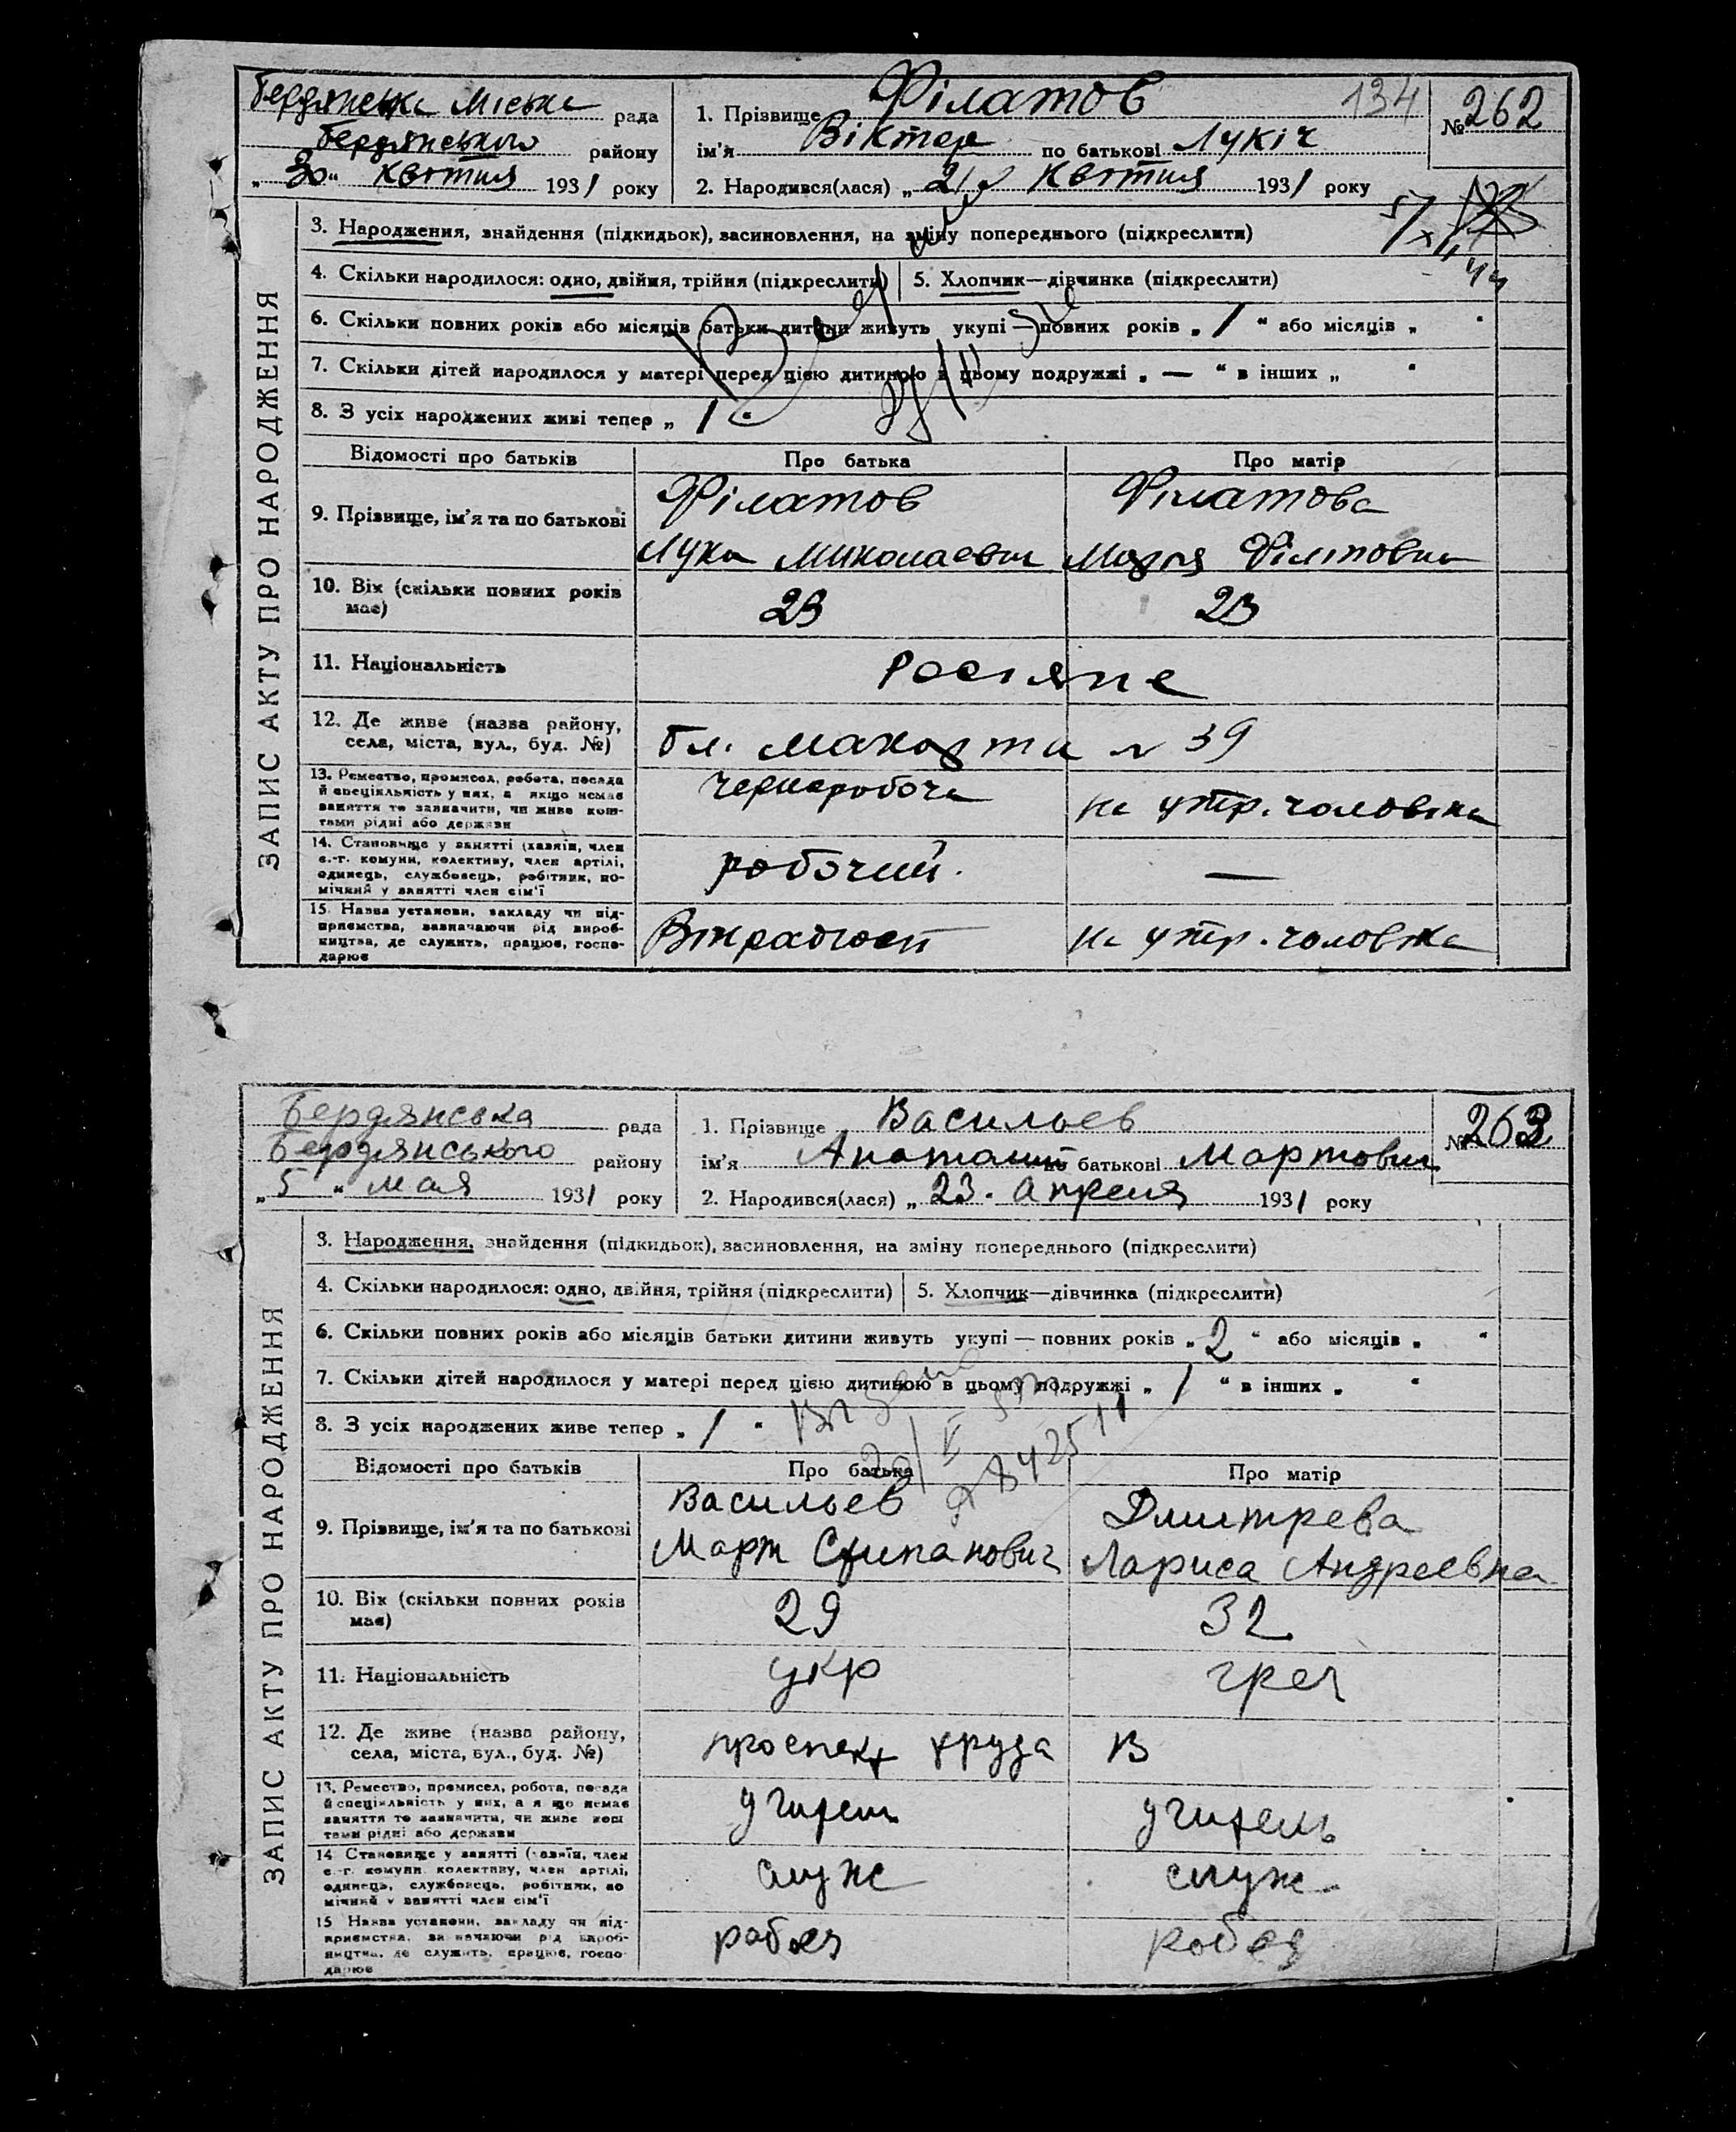 Бердянська Міська рада
Бердянського району
„30“ Квітня 1931 року
1. Прізвище Філатов
134
№ 262
ім’я Віктор по батькові Лукіч
2. Народився(лася) „21 Квітня 1931 року
ЗАПИС АКТУ ПРО НАРОДЖЕННЯ
3. Народження, знайдення (підкидьок), засиновлення, на зміну попереднього (підкреслити)
4. Скільки народилося: одно, двійня, трійня (підкреслити)
5. Хлопчик—дівчинка (підкреслити)
6. Скільки повних років або місяців батьки дитини живуть укупі — повних років „ 1 “ або місяців „ “
7. Скільки дітей народилося у матері перед цією дитиною в цьому подружжі „ — “ в інших „ “
8. З усіх народжених живі тепер „ 1 “
Відомості про батьків
Про батька
Про матір
9. Прізвище, ім’я та по батькові
Філатов
Лука Миколаевич
Філатова
Марія
10. Вік (скільки повних років
має)
23
23
11. Національність
росіяне
12. Де живе (назва району,
села, міста, вул., буд. №)
№ 39
13. Ремество, промисел, робота, посада
й спеціяльність у них, а якщо немає
заняття то зазначити, чи живе кош-
тами рідні або держави
черноробота
на утр. чоловіка
14. Становище у занятті (хазяїн, член
с.-г. комуни, колективу, член артілі,
одинець, службовець, робітник, по-
мічний у занятті член сім’ї
робочий.
—
15. Назва установи, закладу чи під-
приємства, зазначаючи рід вироб-
ництва, де служить, працює, госпо-
дарює
на утр. чоловіка
Бердянська рада
Бердянського району
„5“ мая 1931 року
1. Прізвище Васильев
№ 263
ім’я Анатолий по батькові Мартович
2. Народився(лася) „23. апреля 1931 року
ЗАПИС АКТУ ПРО НАРОДЖЕННЯ
3. Народження, знайдення (підкидьок), засиновлення, на зміну попереднього (підкреслити)
4. Скільки народилося: одно, двійня, трійня (підкреслити)
5. Хлопчик—дівчинка (підкреслити)
6. Скільки повних років або місяців батьки дитини живуть укупі — повних років „ 2 “ або місяців „ “
7. Скільки дітей народилося у матері перед цією дитиною в цьому подружжі „ 1 “ в інших „ “
8. З усіх народжених живе тепер „ 1 “
Відомості про батьків
Про батька
Про матір
9. Прізвище, ім’я та по батькові
Васильев
Март Стипанович
Дмитрева
Лариса Андреевна
10. Вік (скільки повних років
має)
29
32
11. Національність
укр
греч
12. Де живе (назва району,
села, міста, вул., буд. №)
проспект труда
13. Ремество, промисел, робота, посада
й спеціяльність у них, а якщо немає
заняття то зазначити, чи живе кош
тами рідні або держави
учитель
учитель
14 Становище у занятті (хазяїн, член
с.-г. комуни колективу, член артілі,
одинець, службовець, робітник, по
мічний у занятті член сім’ї
служ
служ
15 Назва установи, закладу чи під-
приємства, зазначаючи рід вироб-
ництва, де служить, працює, госпо-
дарює